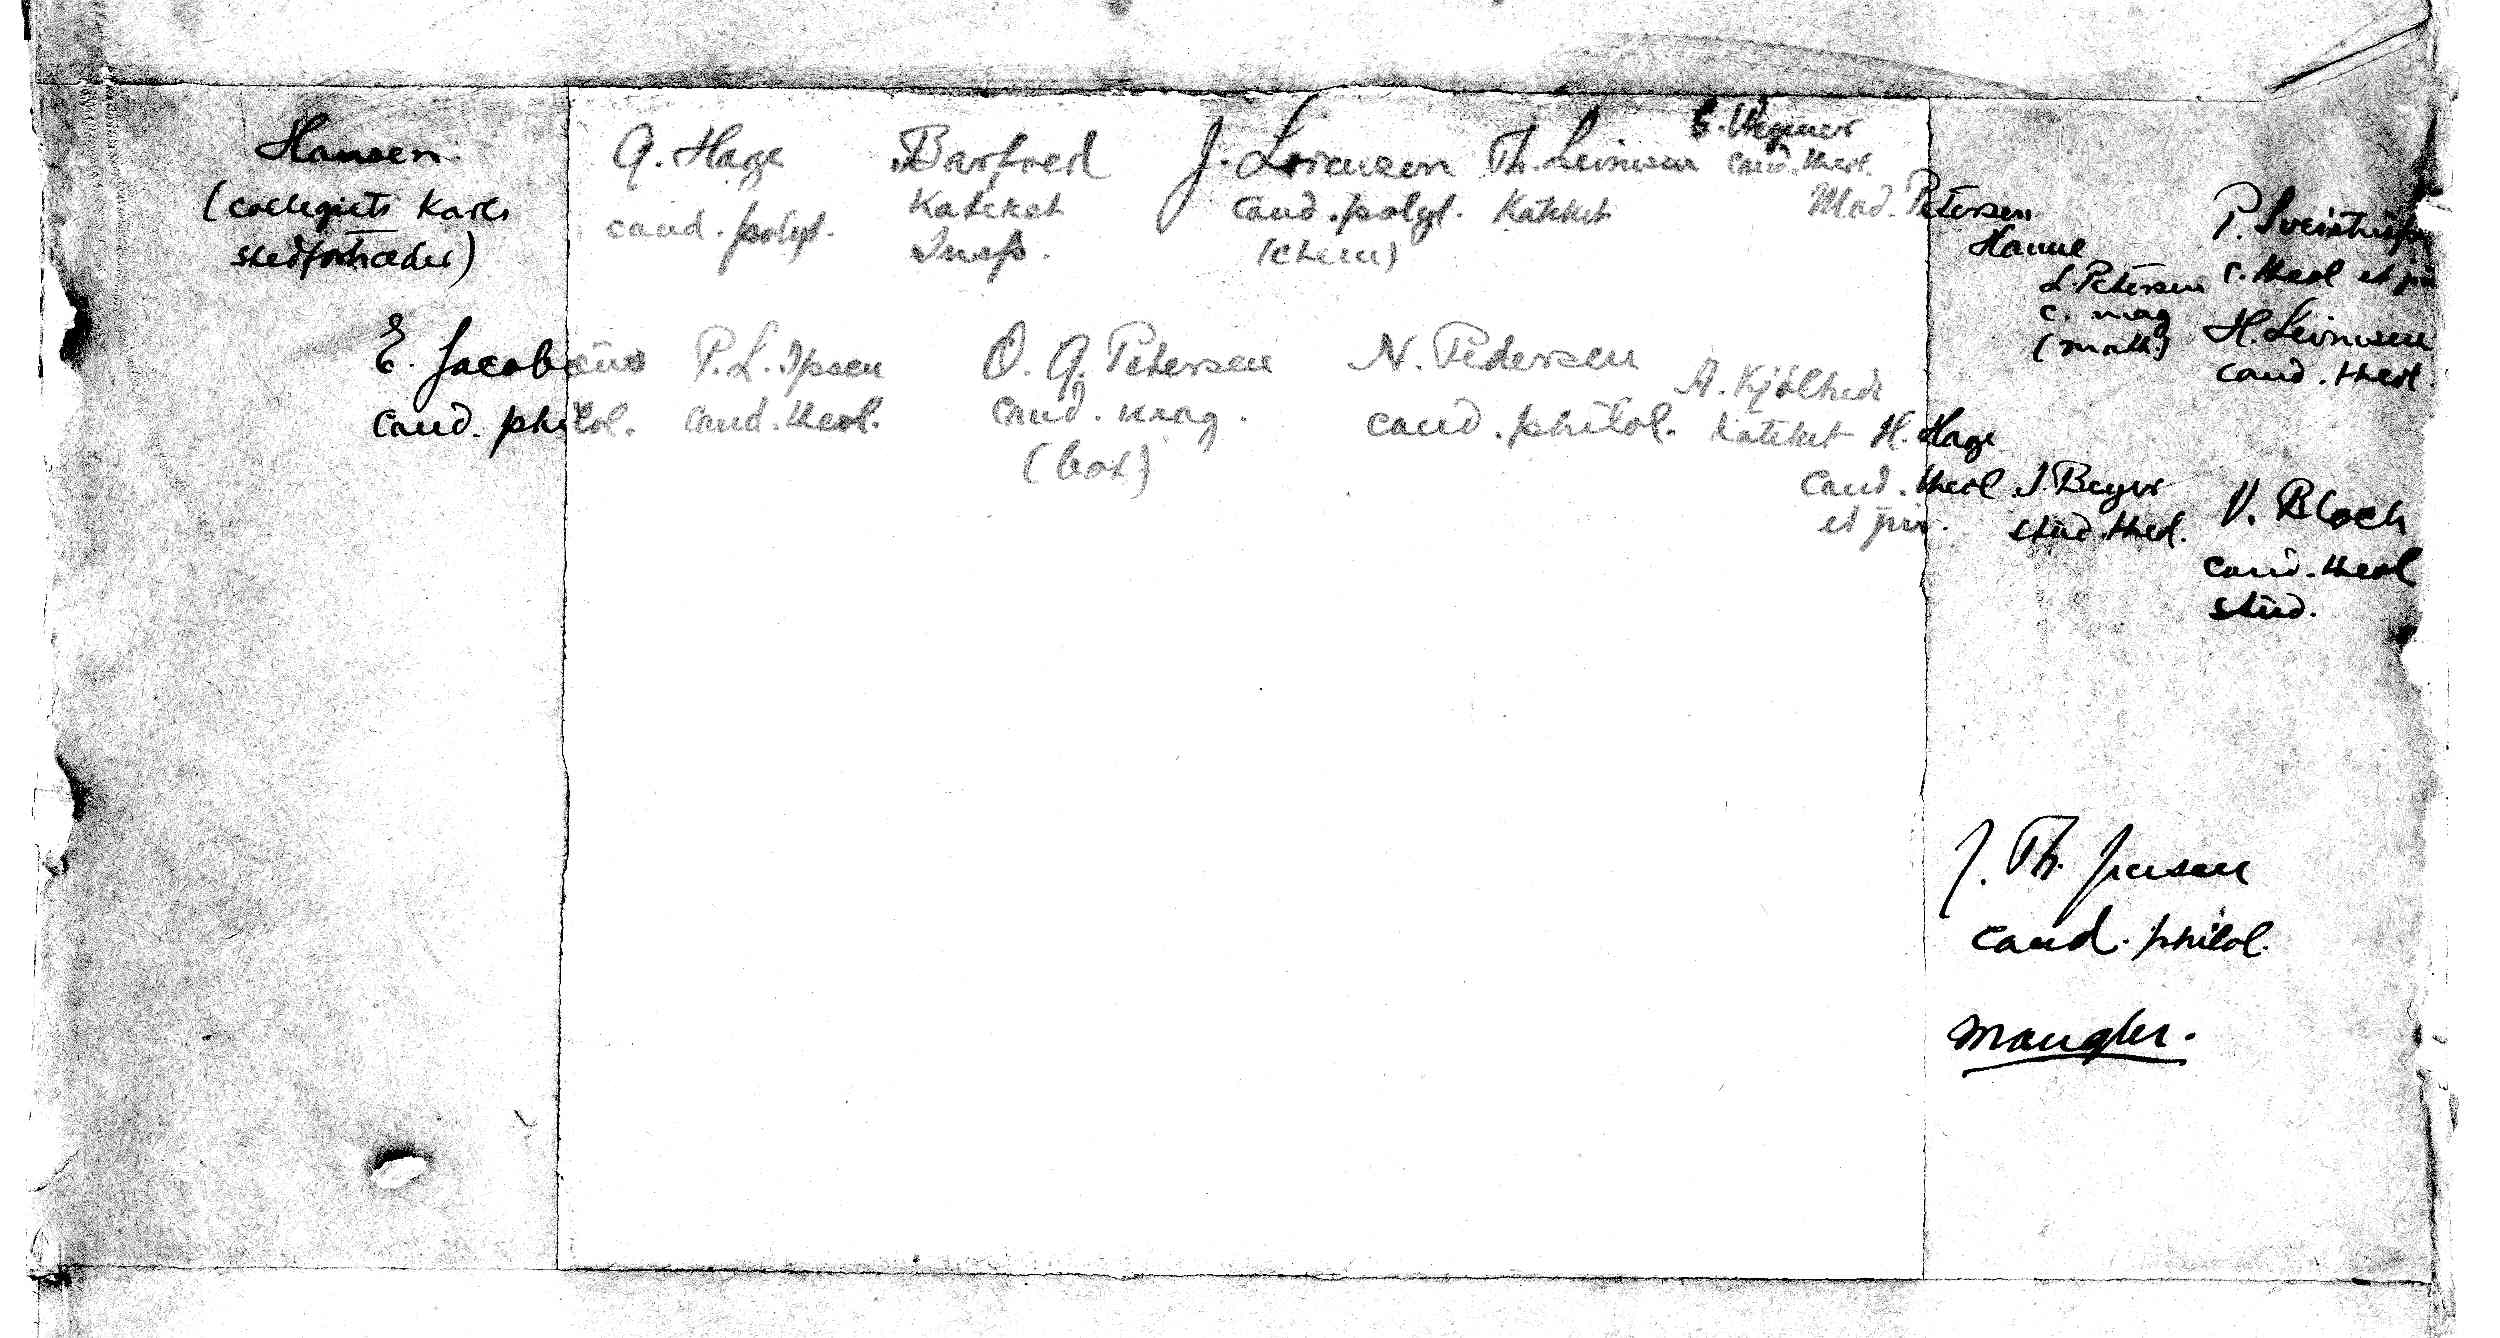 Hansen
(collegiets Karls
stedfortræder)
G. Hage
cand. polyt.
Barfoed
Kateket
J. Lorenzen
cand. polyt.
(chem)
Th. Leinwen
Kateket
E. Wegener
cand. theol.
Mad. Petersen
Hanne
L. Petersen
c. mag
(math)
P.
c. theol et
H.
cand. theol.
E. Jacobsens
cand. philol.
P. L. Ipsen
cand. theol.
O. G. Petersen
cand. mag.
(bot)
N. Pedersen
cand. philol.
A. Kjölhede
Kateket
H. Hage
cand. theol
et jur.
J. Beyer
stud. theol.
V. Bloch
cand. theol
stud.
J. Th. Jensen
cand. philol.
mangler.